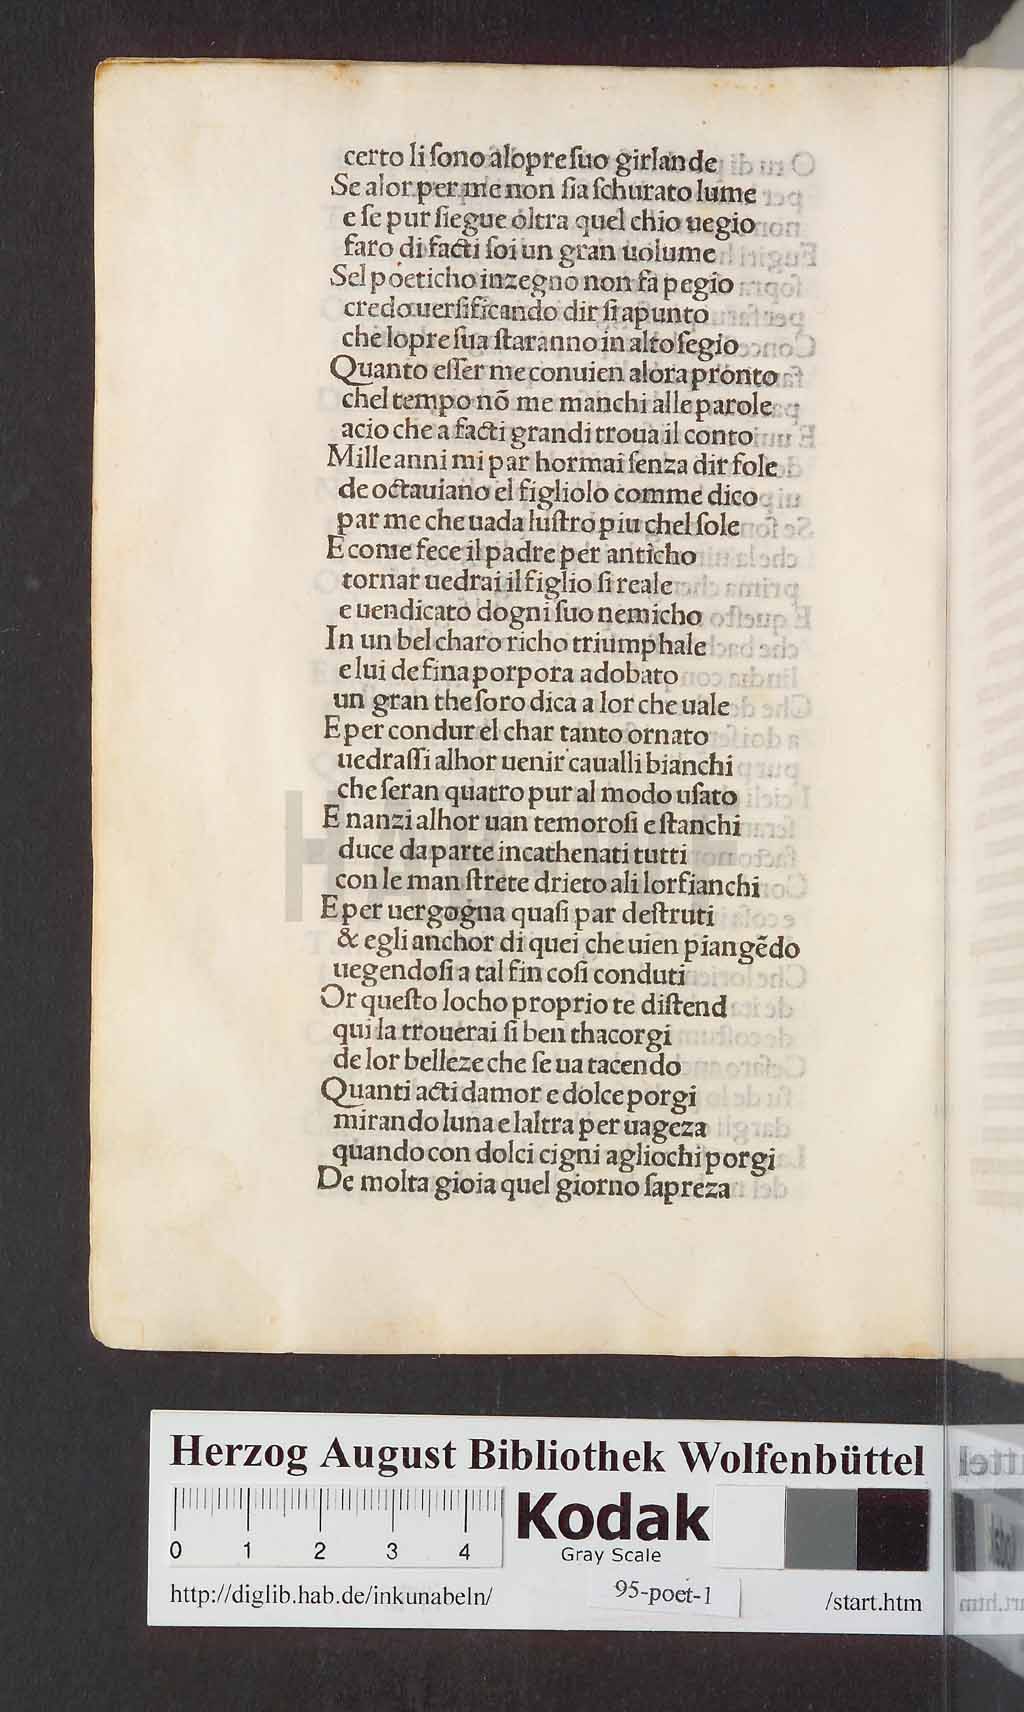 certo li ſono alopre ſuo girlande
Se alor per me non ſia ſchurato lume
e ſe pur ſiegue oltra quel chio uegio
faro di facti ſoi un gran uolume
Sel poeticho inzegno non fa pegio
credo uerſificando dir ſi apunto
che lopre ſua ſtaranno in alto ſegio
Quanto eſſer me conuien alora pronto
chel tempo nõ me manchi alle parole
acio che a facti grandi troua il conto
Mille anni mi par hormai ſenza dir fole
de octauiano el figliolo comme dico
par me che uada luſtro piu chel ſole
E come fece il padre per anticho
tornar uedrai il figlio ſi reale
e uendicato dogni ſuo nemicho
In un bel charo richo triumphale
e lui de fina porpora adobato
un gran theſoro dica a lor che uale
E per condur el char tanto ornato
uedraſſi alhor uenir caualli bianchi
che ſeran quatro pur al modo uſato
E nanzi alhor uan temoroſi e ſtanchi
duce da parte incathenati tutti
con le man ſtrete drieto ali lor fianchi
E per uergogna quaſi par deſtruti
& egli anchor di quei che uien piangẽdo
uegendoſi a tal fin coſi conduti
Or queſto locho proprio te diſtend
qui la trouerai ſi ben thacorgi
de lor belleze che ſe ua tacendo
Quanti acti damor e dolce porgi
mirando luna e laltra per uageza
quando con dolci cigni agliochi porgi
De molta gioia quel giorno ſapreza
HAB WF
Herzog August Bibliothek Wolfenbüttel
Kodak
Gray Scale
0 1 2 3 4
http://diglib.hab.de/inkunabeln/
95-poet-1
/start.htm